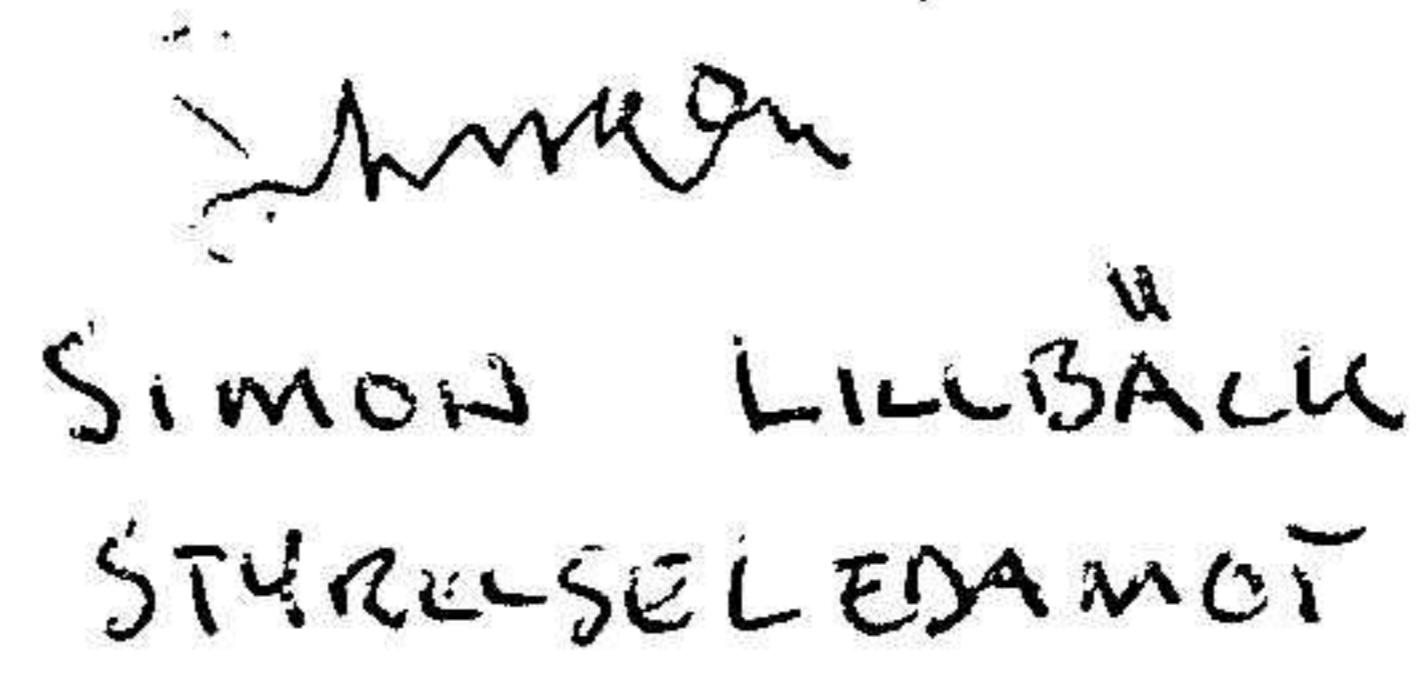 SIMON LILLBÄCK
STYRELSELEDAMOT